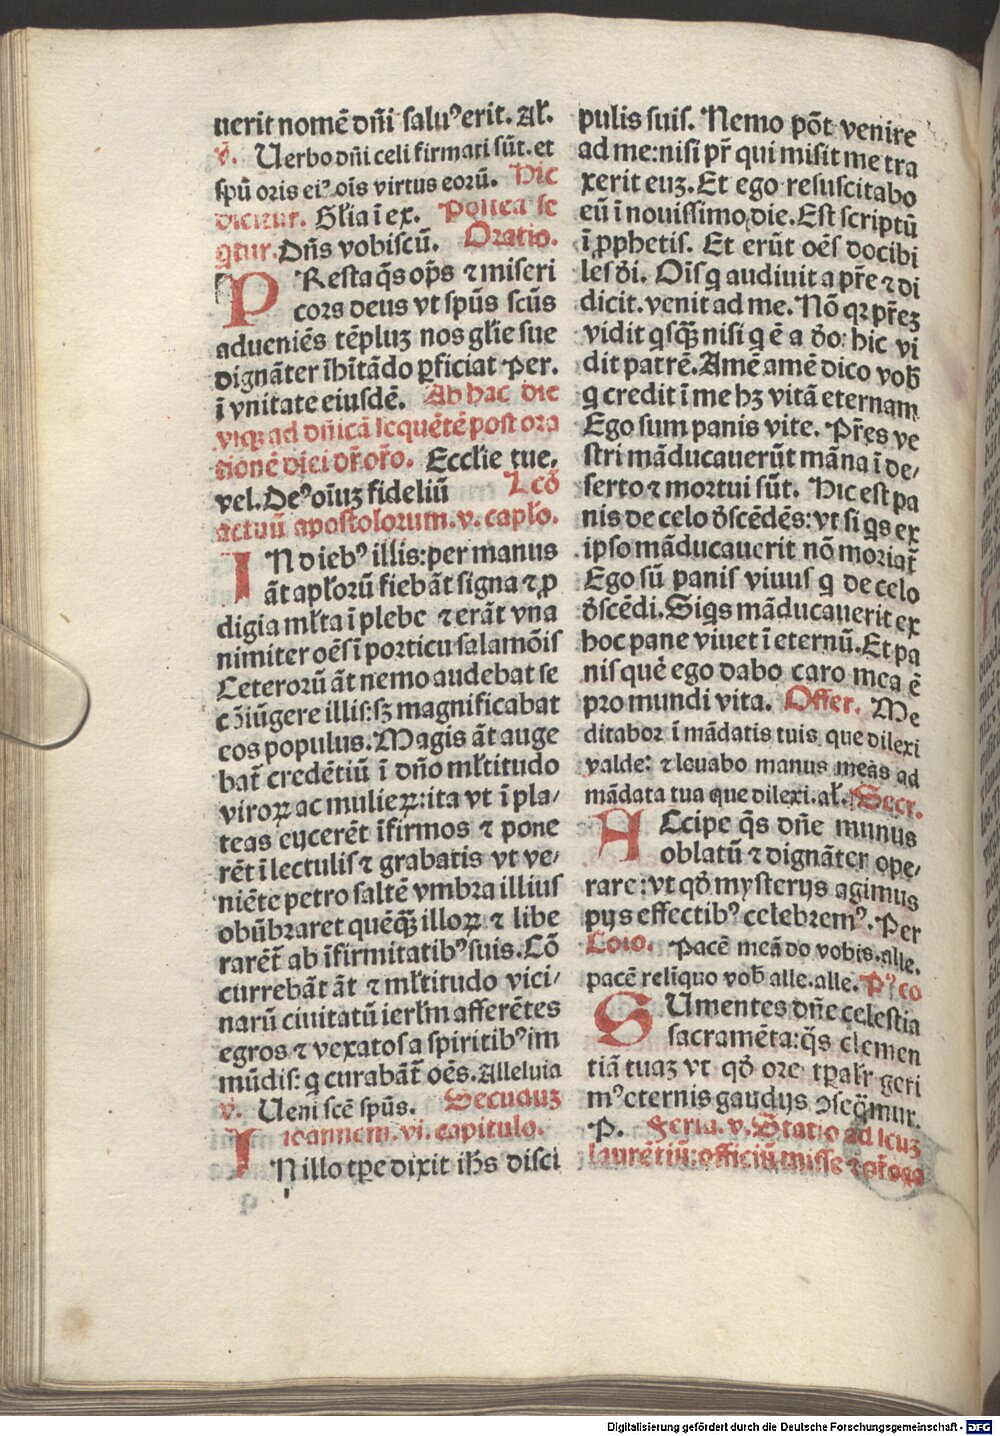 uerit nomē dñi saluꝰ erit. Al̄.
v̄. Uerbo dñi celi firmati sūt. et
spū oris eiꝰ oīs virtus eorū. Hic
dicitur. Gl̄ia ī ex. Postea se
qtur. Dñs vobiscū. Oratio.
PResta q̄s op̄s ⁊ miseri
cors deus vt spūs scūs
adueniēs tēpluꝫ nos gl̄ie sue
dignāter īhītādo ꝑficiat. Per.
ī vnitate eiusdē. Ab hac die
vsqꝫ ad dñicā sequētē post ora
tionē dici dr̄ or̄o. Eccl̄ie tue,
vel. Deꝰ oīuꝫ fideliū Lcō
actuū apostolorum. v. capl̄o.
IN diebꝰ illis: per manus
āt apl̄orū fiebāt signa ⁊ ꝓ
digia ml̄ta ī plebe ⁊ erāt vna
nimiter oēs ī porticu salamōis
Ceterorū āt nemo audebat se
cōiūgere illis: sꝫ magnificabat
eos populus. Magis āt auge
bat̄ credētiū ī dño ml̄titudo
viroꝝ ac mulieꝝ: ita vt ī pla-
teas eijcerēt īfirmos ⁊ pone
rēt ī lectulis ⁊ grabatis vt ve-
niēte petro saltē vmbra illius
obūbraret quēq̄ꝫ illoꝝ ⁊ libe
rarēt̄ ab īfirmitatibꝰ suis. Cō
currebāt āt ⁊ ml̄titudo vici-
narū ciuitatū ierl̄m afferētes
egros ⁊ vexatos a spiritibꝰ im
mūdis: q curabāt̄ oēs. Alleluia
v̄. Ueni scē spūs. Secuduꝫ
ioannem. vi. capitulo.
IN illo tꝑe dixit ih̄s disci
pulis suis. Nemo pōt venire
ad me: nisi pr̄ qui misit me tra
xerit euꝫ. Et ego resuscitabo
eū ī nouissimo die. Est scriptū
ī ꝓphetis. Et erūt oēs docibi
les d̄i. Oīs q audiuit a pr̄e ⁊ di
dicit. venit ad me. Nō qꝛ pr̄eꝫ
vidit qsq̄ꝫ nisi q ē a d̄o: hic vi
dit patrē. Amē amē dico vob̄
q credit ī me hꝫ vitā eternam
Ego sum panis vite. Pr̄es ve
stri māducauerūt māna ī de-
serto ⁊ mortui sūt. Hic est pa
nis de celo d̄scēdēs: vt si qs ex
ipso māducauerit nō moriat̄
Ego sū panis viuus q de celo
d̄scēdi. Siqs māducauerit ex
hoc pane viuet ī eternū. Et pa
nis quē ego dabo caro mea ē
pro mundi vita. Offer. Me
ditabor ī mādatis tuis que dilexi
valde: ⁊ leuabo manus meas ad
mādata tua que dilexi. al̄. Secr.
ACcipe q̄s dñe munus
oblatū ⁊ dignāter ope-
rare: vt qd̄ mysterijs agimus
pijs effectibꝰ celebremꝰ. Per
Cōio. Pacē meā do vobis. alle.
pacē relīquo vob̄ alle. alle. Pꝰ co
SUmentes dñe celestia
sacramēta: q̄s clemen
tiā tuaꝫ vt qd̄ ore tꝑal̄r geri
mꝰ eternis gaudijs ꝯseq̄mur.
P. Feria. v. Statio ad scuꝫ
laurētiū: officiū misse ⁊ or̄o